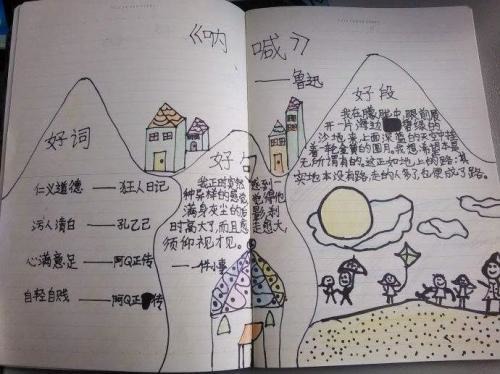 《呐喊》
——鲁迅
好词
仁义道德——狂人日记
污人清白——孔乙己
心满意足——阿Q正传
自轻自贱——阿Q正传
好句
我正时突然感到一
种异样的感觉觉得他
满身灰尘的后影刹
时高大了,而且愈走愈大
须仰视才见。
——一件小事
好段
我在朦胧中,眼前展
开一片海边碧绿的
沙地来,上面深蓝的天空中挂
着一轮金黄的圆月。我想:希望本是
无所谓有的,这正如地上的路;其
实地本没有路,走的人多了,也便成了路。